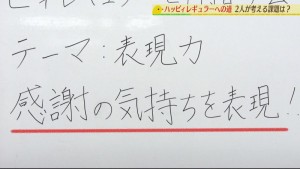 ハッピィレギュラーへの道 2人が考える課題は?
テーマ:表現力
感謝の気持ちを表現!